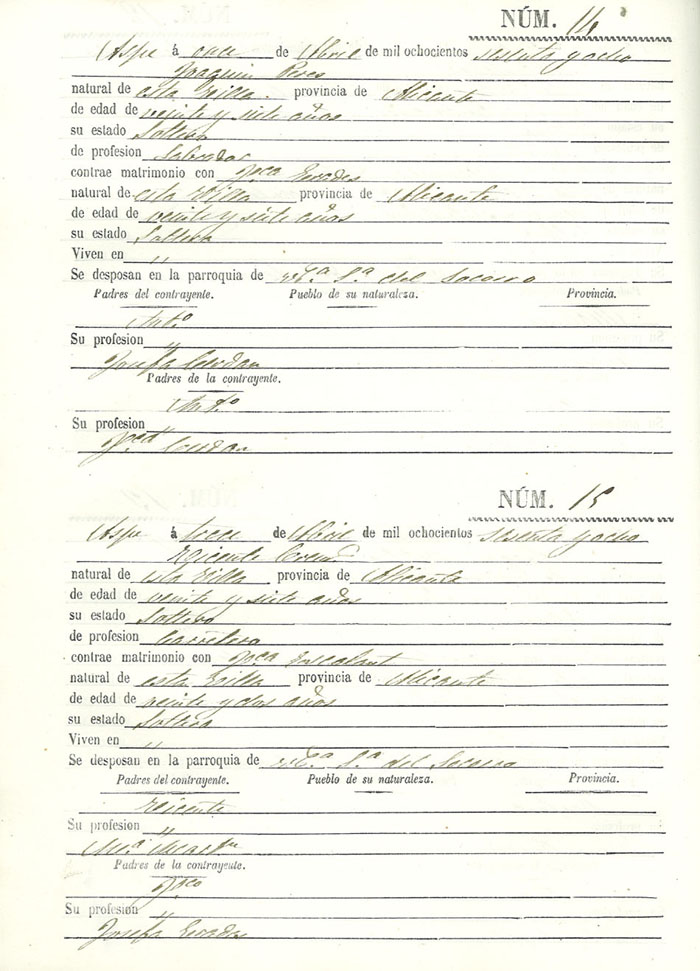 NÚM. 14
Aspe á once de Abril de mil ochocientos sesenta y ocho
Joaquin Peres
natural de esta Villa. provincia de Alicante
de edad de veinte y siete años
su estado Soltero
de profesion Labrador
contrae matrimonio con Fca
natural de esta Villa provincia de Alicante
de edad de veinte y siete años
su estado Soltera
Viven en "
Se desposan en la parroquia de Ntª Sª del Socorro
Padres del contrayente. Pueblo de su naturaleza. Provincia.
Antº
Su profesion "
Josefa Cerdan
Padres de la contrayente.
Antº
Su profesion "
Fca
NÚM. 15
Aspe á trece de Abril de mil ochocientos sesenta y ocho
Vicente
natural de esta Villa provincia de Alicante
de edad de veinte y siete años
su estado Soltero
de profesion Carretero
contrae matrimonio con Fca
natural de esta Villa provincia de Alicante
de edad de veinte y dos años
su estado Soltera
Viven en "
Se desposan en la parroquia de Ntª Sª del Socorro
Padres del contrayente. Pueblo de su naturaleza. Provincia.
Vicente
Su profesion "
Mª
Padres de la contrayente.
Fco
Su profesion "
Josefa